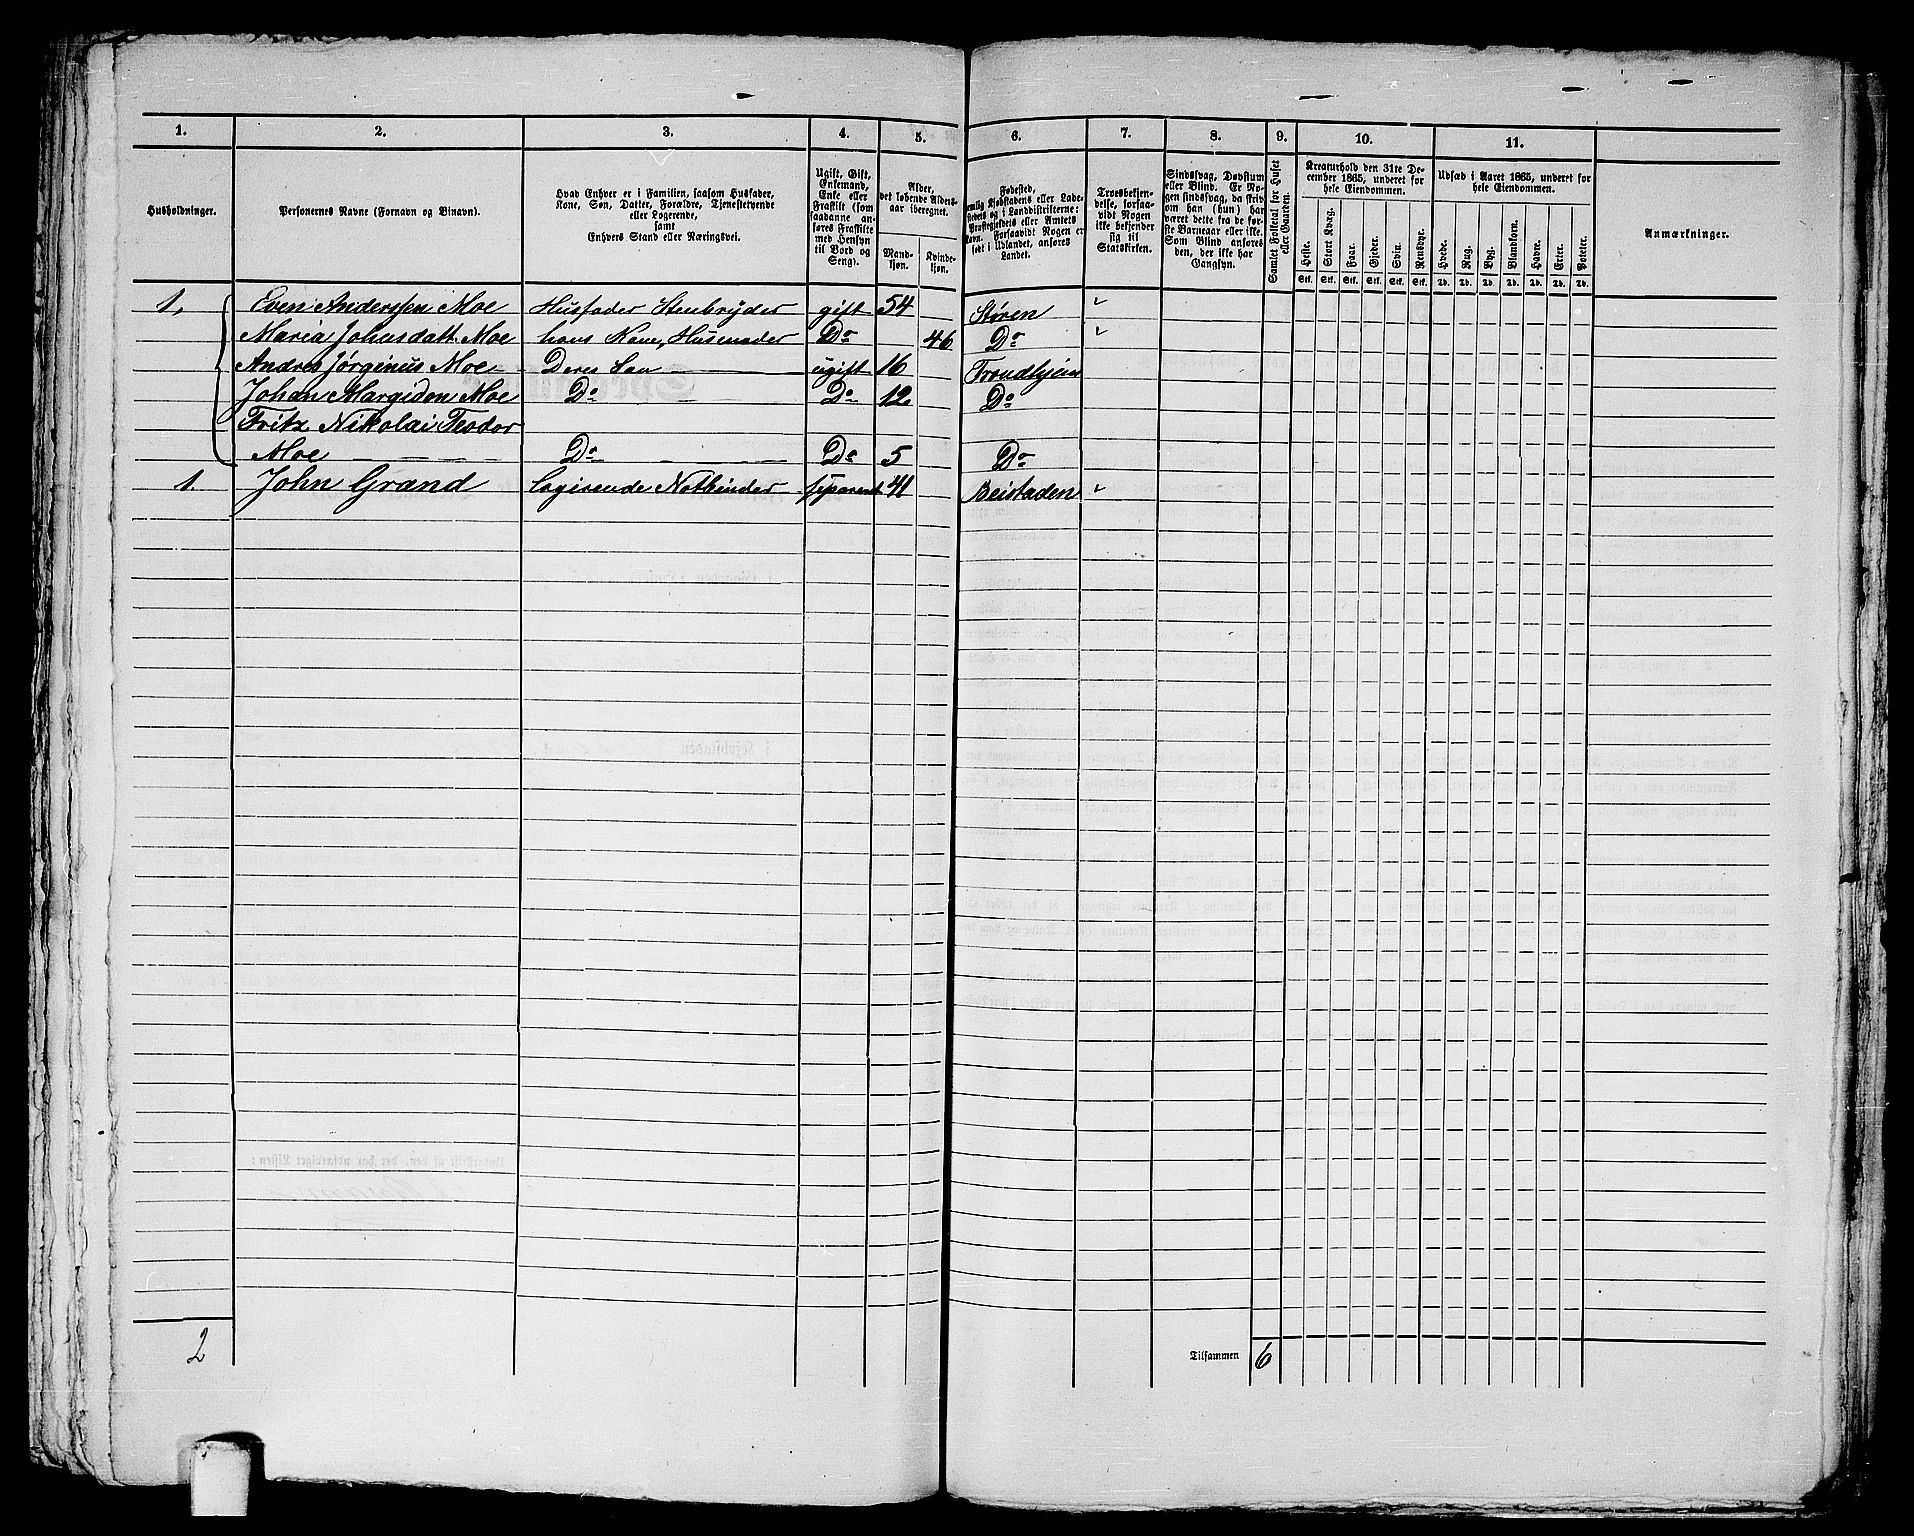 1. 2. 3. 4. 5. 6. 7. 8. 9. 10. 11.
Husholdninger.
Personernes Navne (Fornavn og Binavn).
Hvad Enhver er i Familien, saasom Husfader,
Kone, Søn, Datter, Forældre, Tjenestetyende
eller Logerende,
samt
Enhvers Stand eller Næringsvei.
Ugift, Gift,
Enkemand,
Enke eller
Fraskilt (som
saadanne an-
føres Fraskilte
med Hensyn
til Bord og
Seng).
Alder,
det løbende Alders-
aar iberegnet.
Mand-
kjøn.
Kvinde-
kjøn.
Fødested,
Landet.
Troesbekjen-
delse, forsaa-
vidt Nogen
ikke bekjender
sig til
Statskirken.
Sindssvag, Døvstum
eller Blind. Er No-
gen sindssvag, da skriv
om han (hun) har
været dette fra de før-
ste Barneaar eller ikke.
Som Blind anføres
den, der ikke har
Gangsyn.
Samlet Folketal for Huset
eller Gaarden.
Kreaturhold den 31te De-
cember 1865, underet for
hele Eiendommen.
Heste. Stort Kvæg. Faar. Gjeder. Svin. Rensdyr.
Stk. Stk. Stk. Stk. Stk. Stk.
Udsæd i Aaret 1865, underet for
hele Eiendommen.
Hvede. Rug. Byg. Blandkorn. Havre. Erter. Poteter.
Td. Td. Td. Td. Td. Td. Td.
Anmærkninger.
1, Even Anderssen Moe Husfader Stenbryder gift 54 Støren
Maria Johnsdatt. Moe hans Kone, Husmoder Do 46 Do
Andres Jørginus Moe Deres Søn ugift 16 Trondhjem
Johan Margidon Moe Do Do 12 Do
Fritz Nikolai Teodor
Moe Do Do 5 Do
1. John Grand Logirende Notbinder separert 41 Beistaden
2 Tilsammen 6